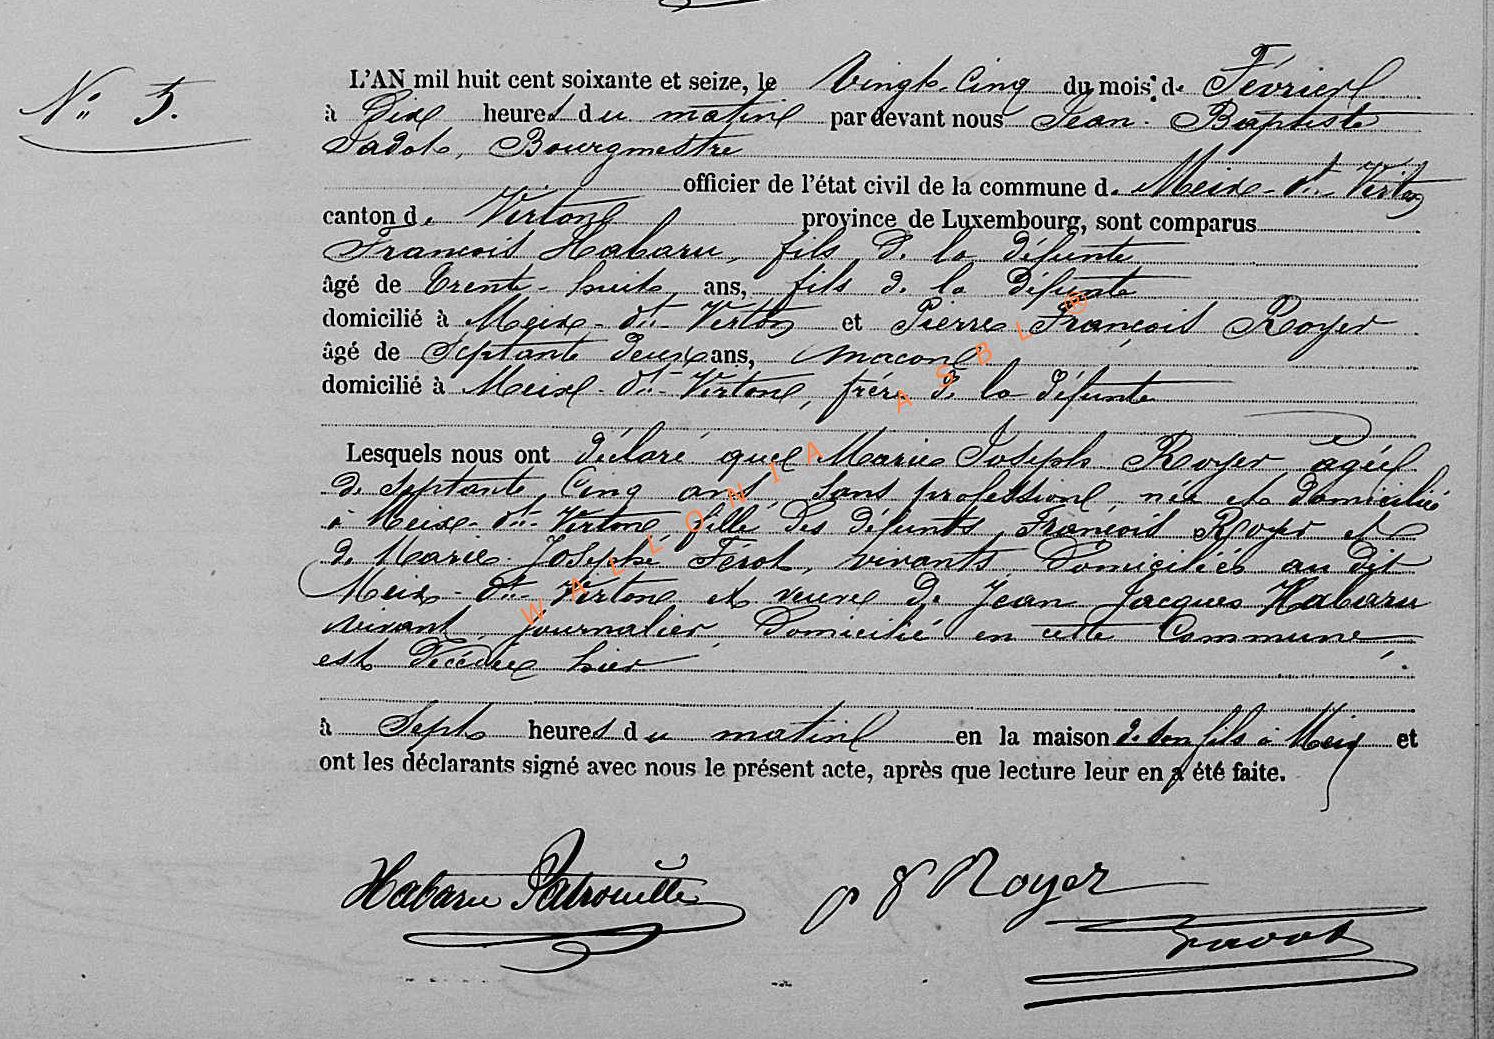 N° 5.
L'AN mil huit cent soixante et seize, le Vingt-Cinq du mois de Février
à Dix heures du matin par devant nous Jean-Baptiste
Jadot, Bourgmestre
officier de l'état civil de la commune de Meix-dt-Virton
canton de Virton province de Luxembourg, sont comparus
François Habaru, fils de la défunte
âgé de trente-huit ans, fils de la défunte
domicilié à Meix-dt-Virton et Pierre François Royer
âgé de Septante deux ans, maçon
domicilié à Meix-dt-Virton, frère de la défunte
Lesquels nous ont déclaré que Marie Joseph Royer agée
de Septante Cinq ans, sans profession, née et domiciliée
à Meix-dt-Virton, fille des défunts François Royer et
de Marie-Josephe Férot, vivants Domiciliés au dit
Meix-dt-Virton et veuve de Jean Jacques Habaru
vivant journalier Domicilié en cette Commune,
est Décédée hier
à Sept heures du matin en la maison de son fils à Meix et
ont les déclarants signé avec nous le présent acte, après que lecture leur en a été faite.
Habaru Patrouille
p f Royer
Jadot
WALLONIA ASBL ®